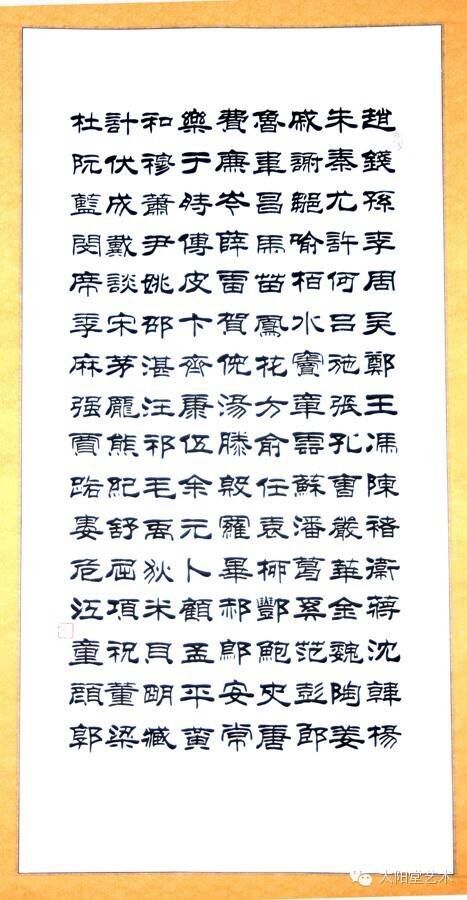 趙錢孫李周吴鄭王馮陳褚衛蔣沈韓楊
朱秦尤許何吕施張孔曹嚴華金魏陶姜
戚謝鄒喻栢水竇章雲蘇潘葛奚范彭郎
魯韋昌馬苗鳳花方俞任袁柳酆鮑史唐
費廉岑薛雷賀倪湯滕殷羅畢郝鄔安常
樂于時傅皮卞齊康伍余元卜顧孟平黄
和穆蕭尹姚邵湛汪祁毛禹狄米貝明臧
計伏成戴談宋茅龐熊紀舒屈項祝董梁
杜阮藍閔席季麻强賈路婁危江童顔郭
大阳堂艺术